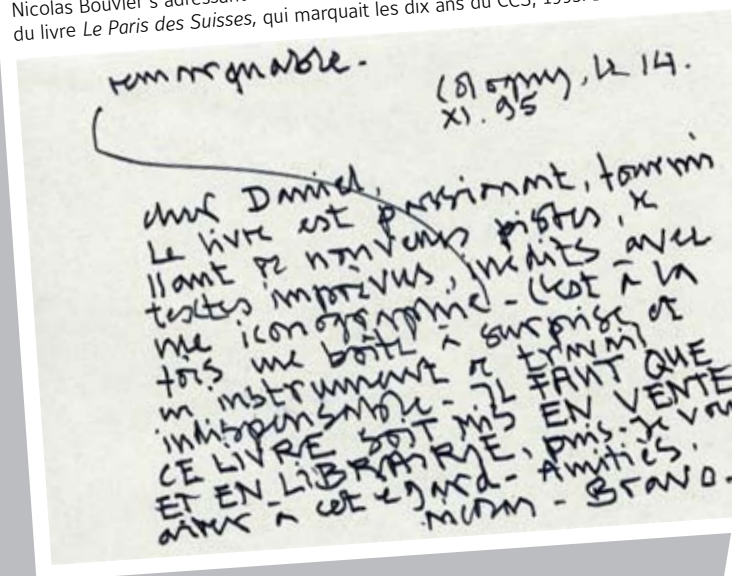 Nicolas Bouvier s'adressant
du livre Le Paris des Suisses, qui marquait les dix ans du CCS, 1995.
remarquable.
Cologny, le 14.
XI. 95
cher Daniel,
Le livre est passionnant, fourmi
llant de nouvelles pistes, de
textes imprévus, inédits avec
une iconographie - C'est à la
fois une boîte à surprise et
un instrument de travail
indispensable - IL FAUT QUE
CE LIVRE SOIT MIS EN VENTE
ET EN LIBRAIRIE, puis-je vous
aider à cet égard - Amitiés.
- Bravo.